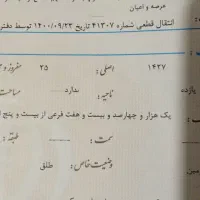 عرصه و اعیان
انتقال قطعی شماره ۴۱۳۰۷ تاریخ ۱۴۰۰/۰۹/۲۳ توسط دفتر
۱۴۲۷ اصلی : ۲۵ مفروز و
یازده ناحیه : ندارد مساحت
یک هزار و چهارصد و بیست و هفت فرعی از بیست و پنج
سمت : طبقه :
وضعیت خاص : طلق